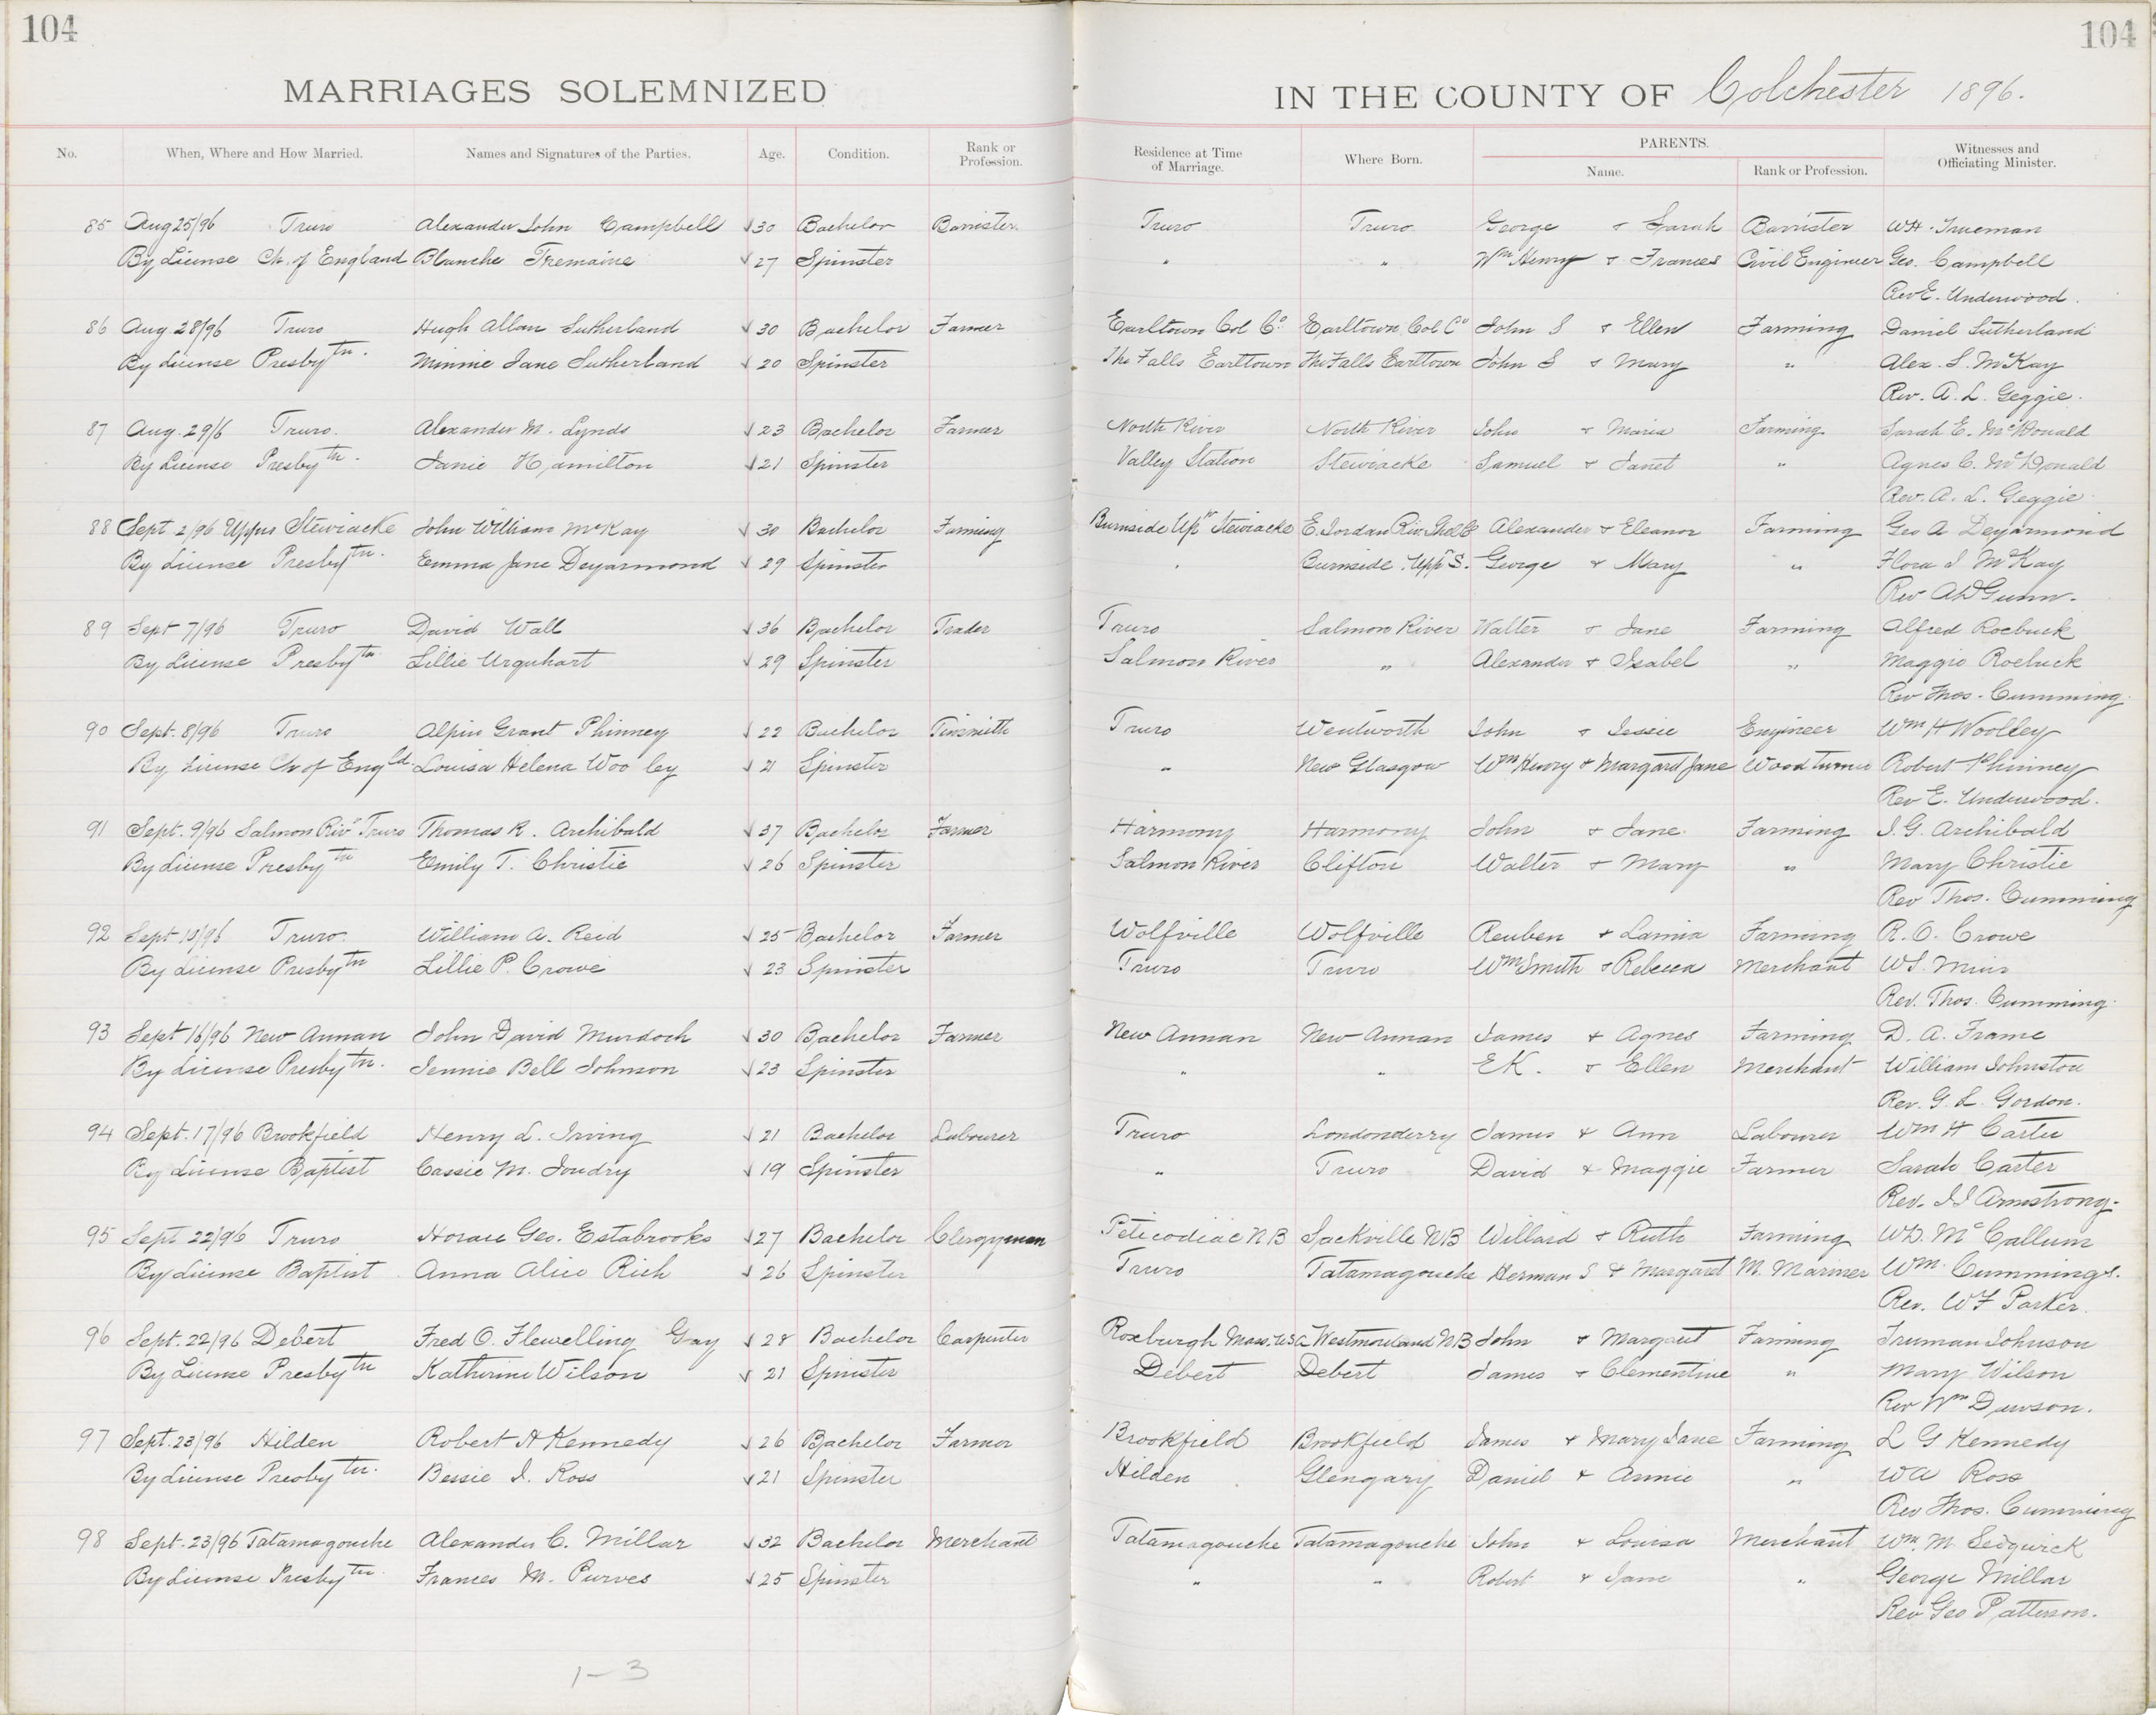 104 104
MARRIAGES SOLEMNIZED IN THE COUNTY OF Colchester 1896.
No. When, Where and How Married. Names and Signatures of the Parties. Age. Condition. Rank or Profession. Residence at Time of Marriage. Where Born. PARENTS. Name. Rank or Profession. Witnesses and Officiating Minister.
85 Aug 25/96 Truro Alexander John Campbell √ 30 Bachelor Barrister. Truro Truro George & Sarah Barrister WH. Trueman
By License Ch. of England Blanche Tremaine √ 27 Spinster " " Wm Henry & Frances Civil Engineer Geo. Campbell
Rev E. Underwood.
86 Aug 28/96 Truro Hugh Allan Sutherland √ 30 Bachelor Farmer Earltown Col Co Earltown Col Co John S & Ellen Farming Daniel Sutherland
By License Presbytn. Minnie Jane Sutherland √ 20 Spinster The Falls Earltown The Falls Earltown John S & Mary " Alex. S. McKay
Rev. A. L. Geggie.
87 Aug. 29/6 Truro. Alexander M. Lynds √ 23 Bachelor Farmer North River North River John & Maria Farming Sarah E. McDonald
By License Presbytn. Janie Hamilton √ 21 Spinster Valley Station Stewiacke Samuel & Janet " Agnes C. McDonald
Rev. A. L. Geggie.
88 Sept 2/96 Upper Stewiacke John William McKay √ 30 Bachelor Farming Burnside Upr Stewiacke E. Jordan Riv. Shel Co Alexander & Eleanor Farming Geo A Deyarmond
By License Presbytn. Emma Jane Deyarmond √ 29 Spinster " Burnside. Uppr S. George & Mary " Flora J McKay
Rev AD Gunn.
89 Sept 7/96 Truro David Wall √ 36 Bachelor Trader Truro Salmon River Walter & Jane Farming Alfred Roebuck
By License Presbytn Lillie Urquhart √ 29 Spinster Salmon River " Alexander & Isabel " Maggie Roebuck
Rev Thos. Cumming.
90 Sept. 8/96 Truro Alpin Grant Phinney √ 22 Bachelor Tinsmith Truro Wentworth John & Jessie Engineer Wm H Woolley
By License Ch of Engld. Louisa Helena Woo ley √ 21 Spinster " New Glasgow Wm Henry & Margaret Jane Wood turner Robert Phinney
Rev E. Underwood.
91 Sept. 9/96 Salmon Rivr Truro Thomas R. Archibald √ 37 Bachelor Farmer Harmony Harmony John & Jane. Farming J. G. Archibald
By License Presbytn Emily T. Christie √ 26 Spinster Salmon River Clifton Walter & Mary " Mary Christie
Rev Thos. Cumming
92 Sept 10/96 Truro. William A. Reid √ 25 Bachelor Farmer Wolfville Wolfville Reuben & Lamia Farming R. O. Crowe
By License Presbytn Lillie P. Crowe √ 23 Spinster Truro Truro Wm Smith & Rebecca Merchant WS. Muir
Rev. Thos. Cumming.
93 Sept 16/96 New Annan John David Murdoch √ 30 Bachelor Farmer New Annan New Annan James & Agnes Farming D. A. Frame
By License Presbytn. Jennie Bell Johnson √ 23 Spinster " " EK. & Ellen Merchant William Johnston
Rev. G. L. Gordon.
94 Sept. 17/96 Brookfield Henry L. Irving √ 21 Bachelor Labourer Truro Londonderry James & Ann Labourer Wm H Carter
By License Baptist Cassie M. Joudry √ 19 Spinster " Truro David & Maggie Farmer Sarah Carter
Rev. JJ Armstrong.
95 Sept 22/96 Truro Horace Geo. Estabrooks √ 27 Bachelor Clergyman Peticodiac NB Sackville NB Willard & Ruth Farming WD. McCallum
By License Baptist Anna Alice Rich √ 26 Spinster Truro Tatamagouche Herman S & Margaret M. Mariner Wm. Cummings.
Rev. WF Parker.
96 Sept. 22/96 Debert Fred O. Flewelling Gray √ 28 Bachelor Carpenter Roxburgh Mass. USA Westmoreland NB John & Margaret Farming Truman Johnson
By License Presbytn Katherine Wilson √ 21 Spinster Debert Debert James & Clementine " Mary Wilson
Rev Wm Dawson.
97 Sept. 23/96 Hilden Robert A Kennedy √ 26 Bachelor Farmer Brookfield Brookfield James & Mary Jane Farming L G Kennedy
By License Presbytn. Bessie J. Ross √ 21 Spinster Hilden Glengary Daniel & Annie " WA Ross
Rev Thos. Cumming
98 Sept. 23/96 Tatamagouche Alexander C. Millar √ 32 Bachelor Merchant Tatamagouche Tatamagouche John & Louisa Merchant Wm. M. Sedgwick
By License Presbytn. Frances M. Purves √ 25 Spinster " " Robert & Jane " George Millar
Rev Geo Patterson.
1-3